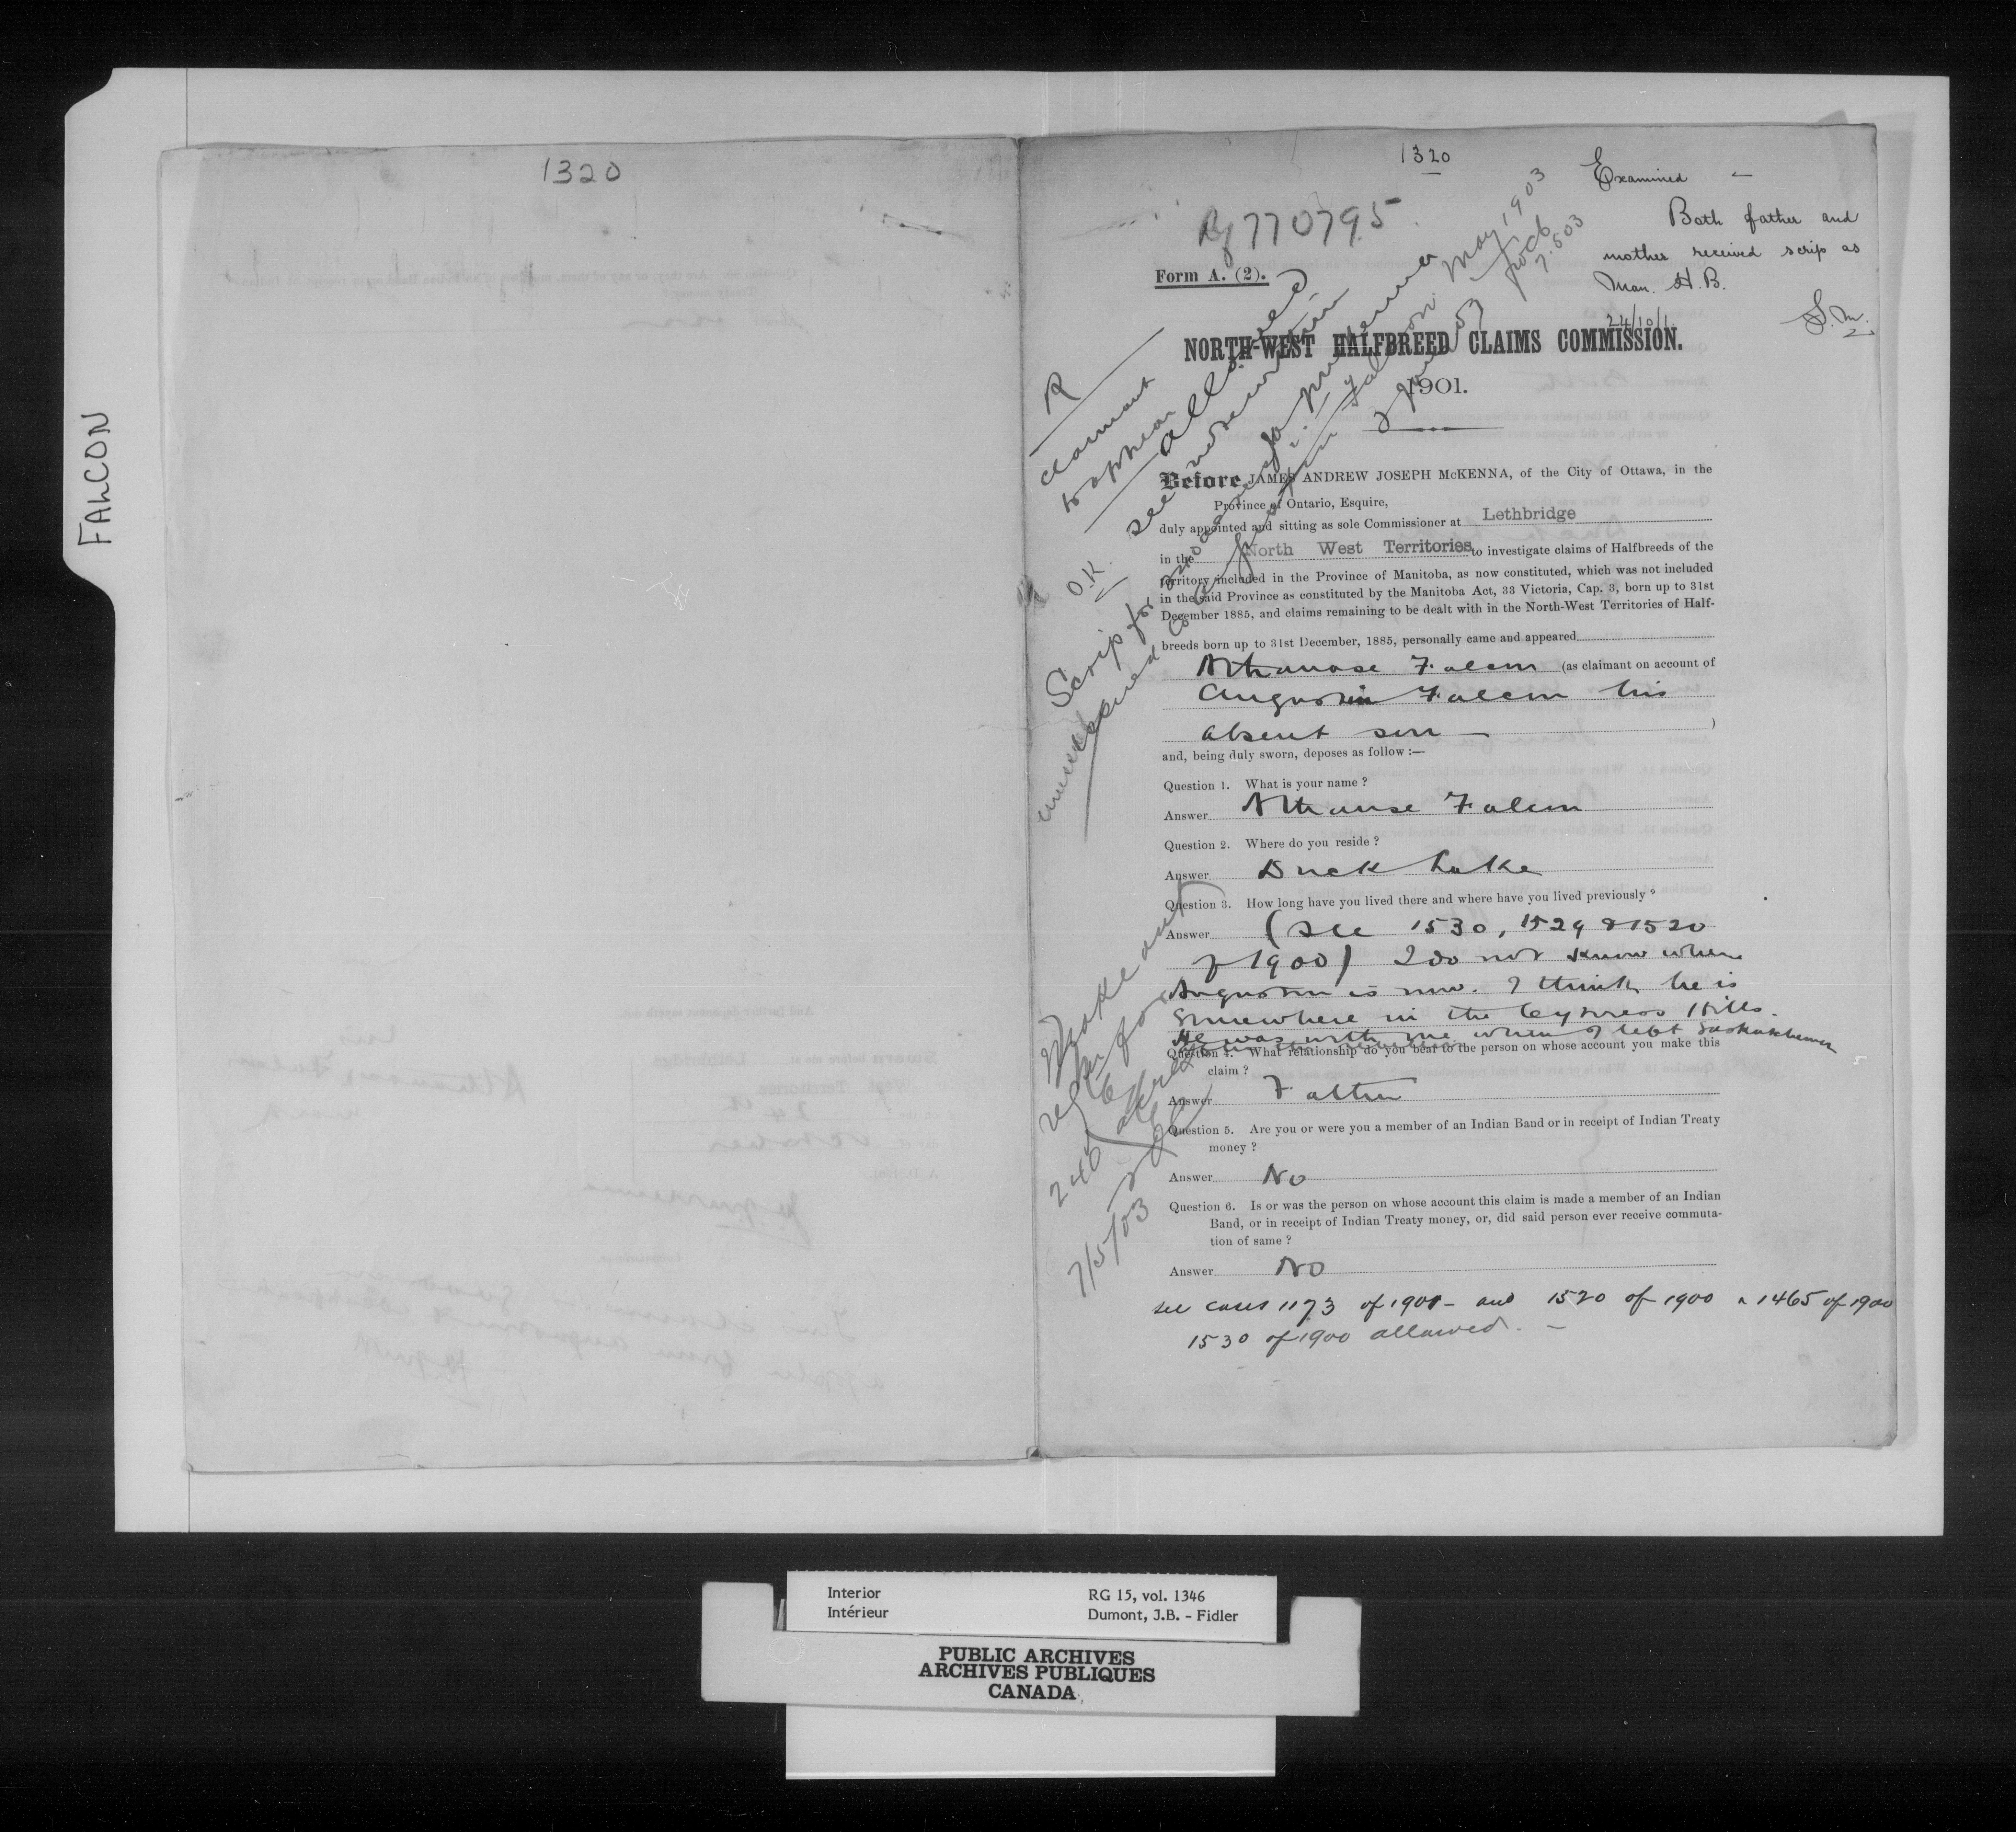 FALCON
1320
1320
Examined —
Both father and
mother received scrip as
Man. H.B.
24/10/1.
S.M.
Rg 770795
Form A. (2).
NORTH-WEST HALFBREED CLAIMS COMMISSION.
1901.
R
claimant
to appear
allowed
see
O.K.
Scrip for
May 1903
7.5.03
Before JAMES ANDREW JOSEPH McKENNA, of the City of Ottawa, in the
Province of Ontario, Esquire,
duly appointed and sitting as sole Commissioner at Lethbridge
in the North West Territories to investigate claims of Halfbreeds of the
territory included in the Province of Manitoba, as now constituted, which was not included
in the said Province as constituted by the Manitoba Act, 33 Victoria, Cap. 3, born up to 31st
December 1885, and claims remaining to be dealt with in the North-West Territories of Half-
breeds born up to 31st December, 1885, personally came and appeared
Athanase Falcon (as claimant on account of
Augustin Falcon his
absent son — )
and, being duly sworn, deposes as follow :—
Question 1. What is your name ?
Answer Athanase Falcon
Question 2. Where do you reside ?
Answer Duck Lake
Question 3. How long have you lived there and where have you lived previously ?
Answer (see 1530, 1529 & 1520
of 1900) I do not know where
Augustin is now. I think he is
somewhere in the Cypress Hills.
He was with me when I left Saskatchewan
Question 4. What relationship do you bear to the person on whose account you make this
claim ?
Answer Father
Question 5. Are you or were you a member of an Indian Band or in receipt of Indian Treaty
money ?
Answer No
Question 6. Is or was the person on whose account this claim is made a member of an Indian
Band, or in receipt of Indian Treaty money, or, did said person ever receive commuta-
tion of same ?
Answer No
see cases 1173 of 1901 - and 1520 of 1900 & 1465 of 1900
1530 of 1900 allowed. —
Make out
for
240 acres
7/5/03
Interior
Intérieur
RG 15, vol. 1346
Dumont, J.B. - Fidler
PUBLIC ARCHIVES
ARCHIVES PUBLIQUES
CANADA